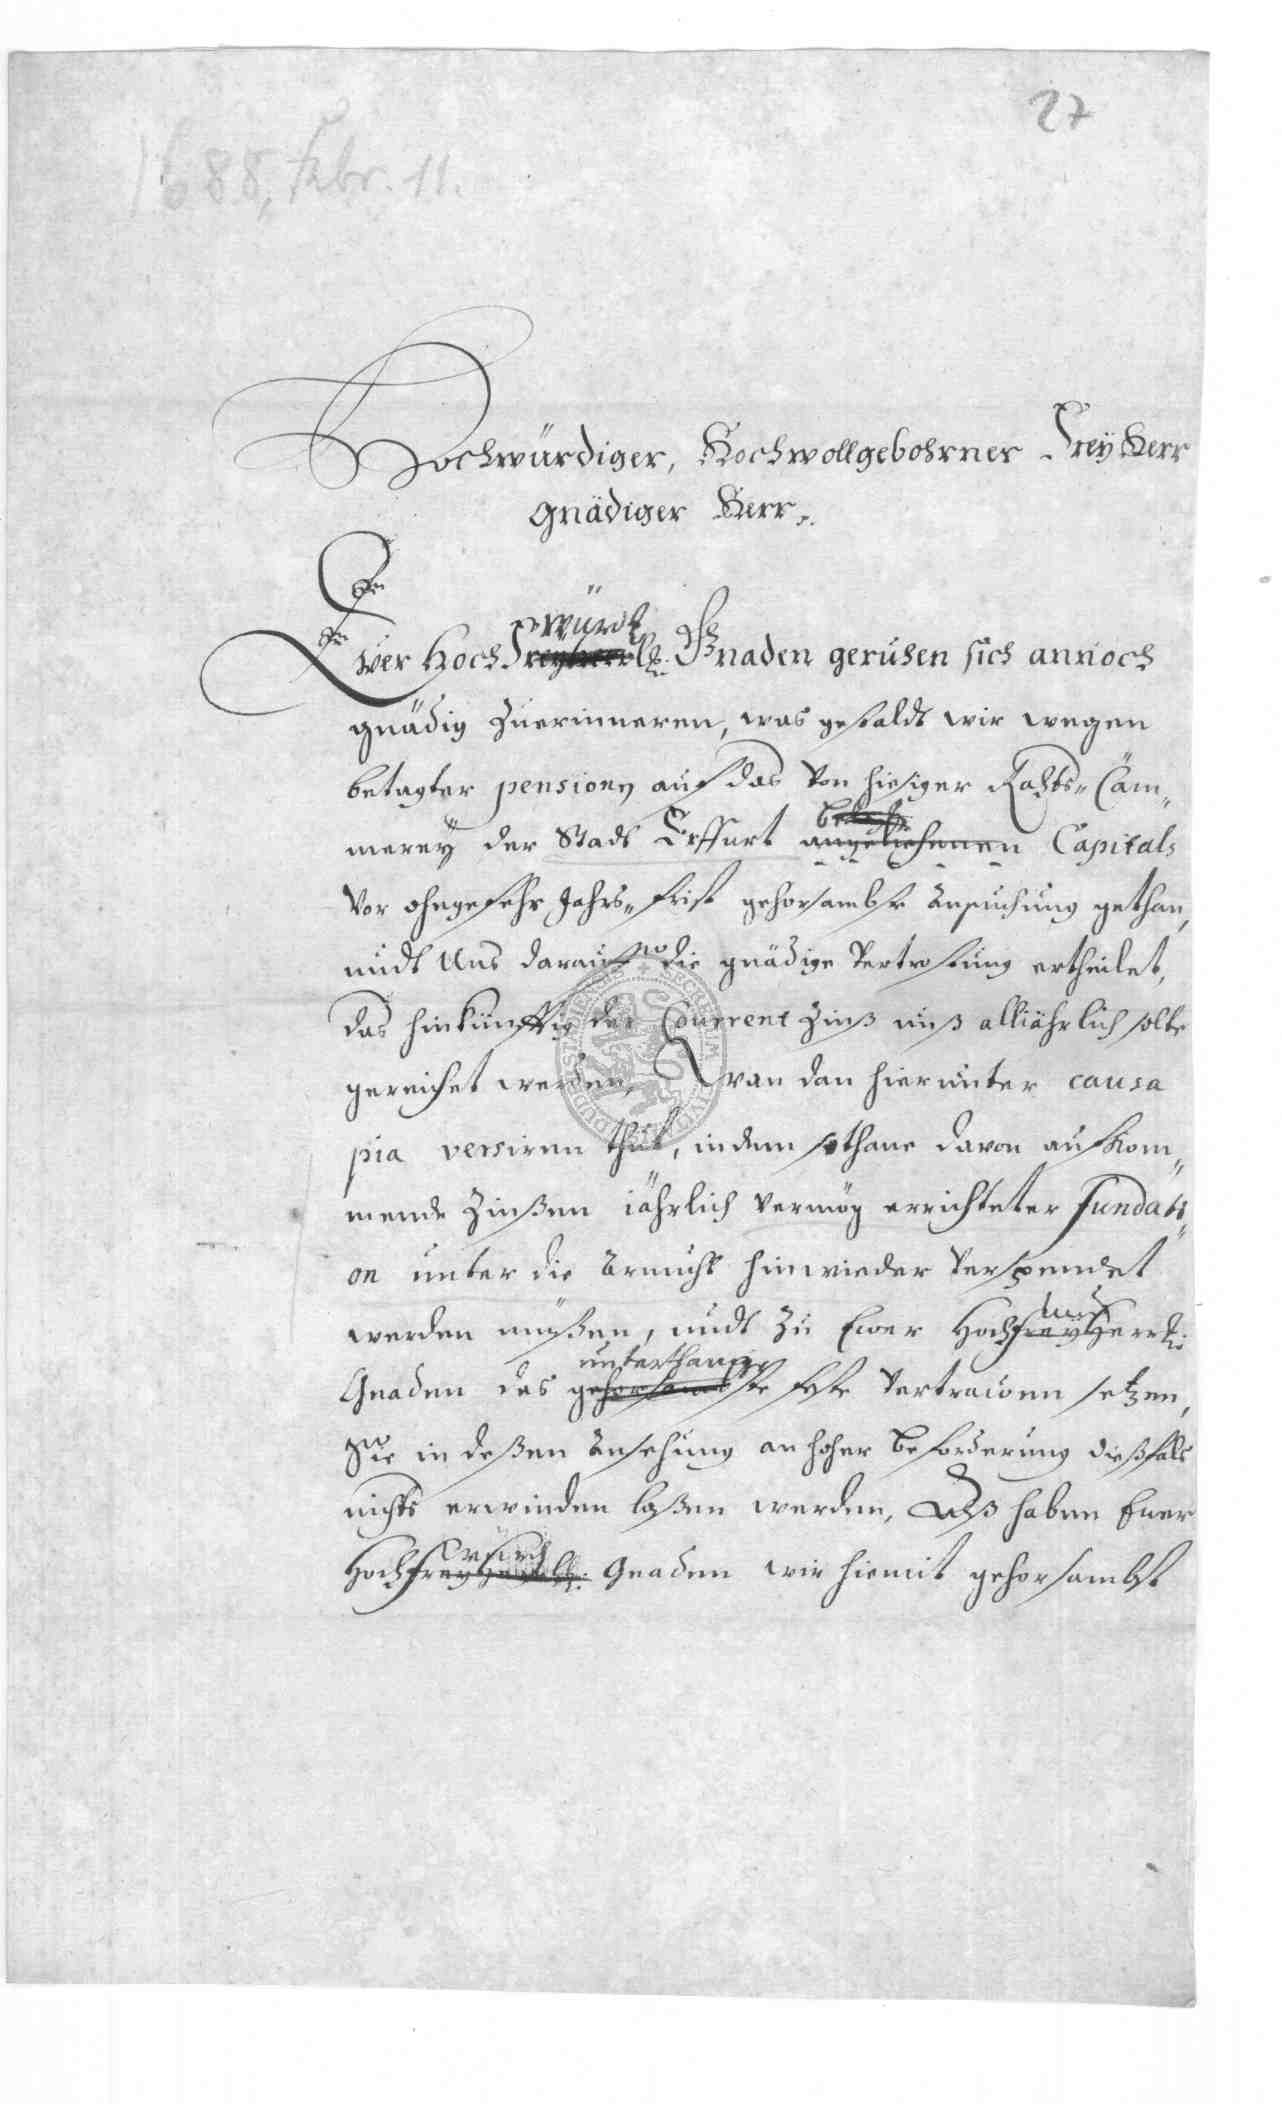 27
1688, Febr. 11.
Hochwürdiger, Hochwollgebohrner FreyHerr
gnädiger Herr.
Ewer Hoch würd. Gnaden geruhen sich annoch
gnädig zuerinneren, was gestaldt wir wegen
betagter pension auf das von hiesiger Rahts-Cäm-
merey der Stadt Erffurt angeliehenen Capitals
vor ohngefehr Jahrs-frist gehorsambste ansuchung gethan,
undt Uns darauf die gnädige Vertröstung ertheilet,
das hinkünfftig der Courrent Zinß unß alljährlich solte
gereichet werden, Wan dan hierunter causa
pia versiren thut, indem sothane davon aufkom-
mende Zinßen jährlich vermög errichteter fundati-
on unter die Armuht hinwieder verspendet
werden müßen, undt zu Ewer HochfreyHerrl.
Gnaden das unterthänigste feste Vertrawen setzen,
Sie in deßen ansehung an hoher beforderung dießfals
nichts erwinden laßen werden, Alß haben Ewer
Hoch würd. Gnaden wir hiemit gehorsambst